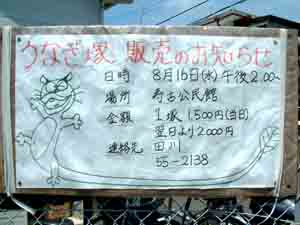 うなぎ塚 販売のお知らせ
日時 8月16日(水)午後2.00〜
場所 寿古公民館
金額 1塚 1,500円(当日)
翌日より2000円
連絡先 田川
55-2138